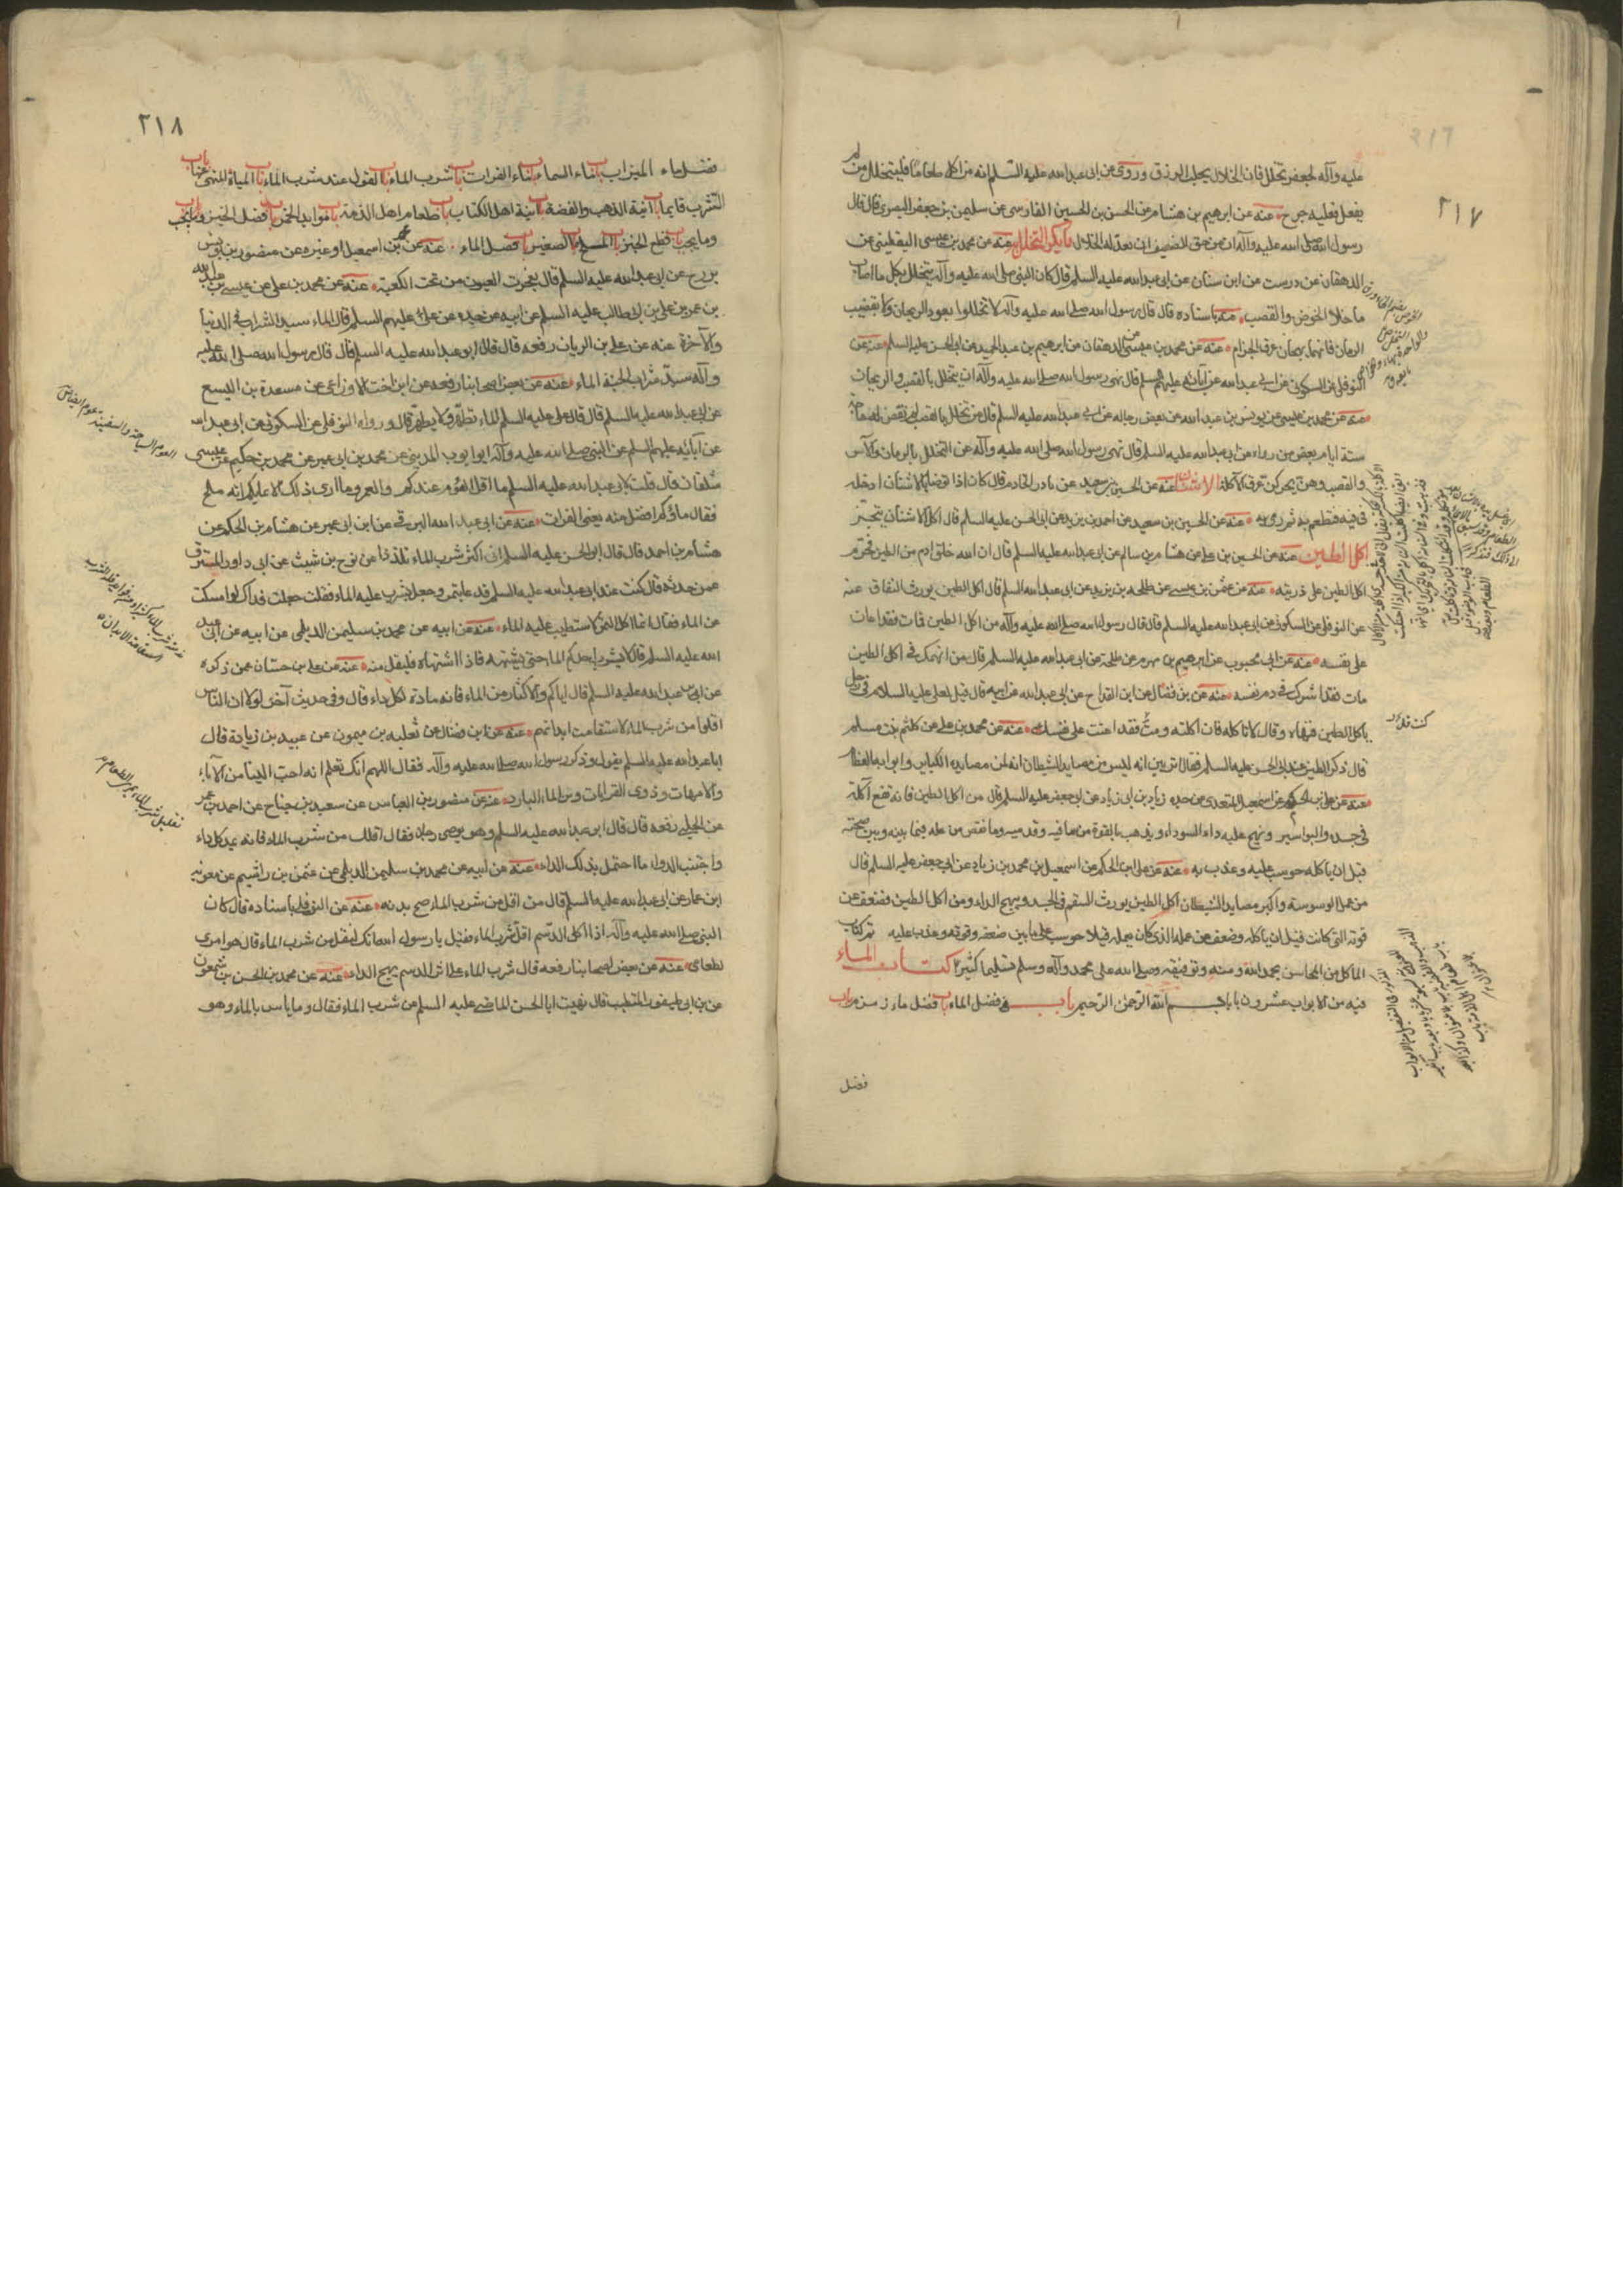 ٢١٧
عليه وآله لجعفر تخلل فان الخلال يجلب الرزق وروى عن ابى عبد الله عليه السلم انه من اكل طعاما فليتخلل ومن لم
يفعل فعليه حرج عنه عن ابرهيم بن هشام عن الحسن بن الحسين الفارسى عن سليمن بن جعفر البصرى قال قال
رسول الله صلى الله عليه وآله ان من حق الضيف ان يعد له الخلال ما يكره التخلل به عنه عن محمد بن عيسى اليقطينى عن
الدهقان عن درست عن ابن سنان عن ابى عبد الله عليه السلم قال كان النبى صلى الله عليه وآله يتخلل بكل ما اصاب
ما خلا الخوص والقصب عنه باسناده قال قال رسول الله صلى الله عليه وآله لا تخللوا بعود الريحان ولا بقضيب
الرمان فانهما يهيجان عرق الجذام عنه عن محمد بن عيسى عن الدهقان عن ابرهيم بن عبد الحميد عن ابى الحسن عليه السلم عنه عن
النوفلى عن السكونى عن ابى عبد الله عن آبائه عليهم السلم قال نهى رسول الله صلى الله عليه وآله ان يتخلل بالقصب والريحان
عنه عن محمد بن عيسى عن يونس بن عبد الله عن بعض رجاله عن ابى عبد الله عليه السلم قال من تخلل بالقصب لم تقض له حاجة
ستة ايام بعض من رواه عن ابى عبد الله عليه السلم قال نهى رسول الله صلى الله عليه وآله عن التخلل بالرمان والآس
والقصب وهن يحركن عرق الآكلة الاشنان عنه عن الحسين بن سعيد عن نادر الخادم قال كان اذا توضأ بالاشنان ادخله
فى فيه فتطعم به ثم رمى به عنه عن الحسين بن سعيد عن احمد بن يزيد عن ابى الحسن عليه السلم قال اكل الاشنان يبخر
اكل الطين عنه عن الحسين بن على عن هشام بن سالم عن ابى عبد الله عليه السلم قال ان الله خلق آدم من الطين فحرم
اكل الطين على ذريته عنه عن عثمن بن عيسى عن طلحة بن يزيد عن ابى عبد الله عليه السلم قال اكل الطين يورث النفاق عنه
عن النوفلى عن السكونى عن ابى عبد الله عليه السلم قال قال رسول الله صلى الله عليه وآله من اكل الطين فمات فقد اعان
على نفسه عنه عن ابى محبوب عن ابرهيم بن مهزم عن طلحة عن ابى عبد الله عليه السلم قال من انهمك فى اكل الطين
مات فقد شرك فى دم نفسه عنه عن بن فضال عن ابن القداح عن ابى عبد الله عن ابيه قال قيل لعلى عليه السلام فى رجل
ياكل الطين فنهاه وقال لا تاكله فان اكلته ومت فقد اعنت على نفسك عنه عن محمد بن على عن كلثم بنت مسلم
قال ذكر الطين عند ابى الحسن عليه السلم فقال اترين انه ليس من مصايد الشيطان انه لمن مصايده الكبار وابوابه العظام
عنه عن على بن الحكم عن اسمعيل المنقرى عن جده زياد بن ابى زياد عن ابى جعفر عليه السلم قال من اكل الطين فانه تقع الحكة
فى جسده والبواسير ويهيج عليه داء السوداء ويذهب بالقوة من ساقيه وقدميه وما نقص من عمله فيما بينه وبين صحته
قبل ان ياكله حوسب عليه وعذب به عنه عن على بن الحكم عن اسمعيل بن محمد بن زياد عن ابى جعفر عليه السلم قال
من عمل الوسوسة واكبر مصايد الشيطان اكل الطين يورث السقم فى الجسد ويهيج الداء ومن اكل الطين فضعف عن
قوته التى كانت قبل ان ياكله وضعف عن عمله الذى كان يعمله قبلا حوسب على ما بين ضعفه وقوته وعذب عليه تم كتاب
الماكل من المحاسن بحمد الله ومنه وتوفيقه وصلى الله على محمد وآله وسلم تسليما كثيرا كتاب الماء
فيه من الابواب عشرون بابا بسم الله الرحمن الرحيم باب فى فضل الماء باب فضل ماء زمزم باب
فضل
٢١٨
فضل ماء الميزاب باب ماء السماء باب ماء الفرات باب شرب الماء باب القول عند شرب الماء باب المياه المنهى عنها باب
الشرب قايما باب آنية الذهب والفضة باب آنية اهل الكتاب باب طعام اهل الذمة باب فوايد الخبز باب فضل الخبز وما يجب
وما يجب باب قطع الخبز باب الملح باب الصغير باب فضل الماء عنه عن محمد بن اسمعيل او غيره عن منصور بن يونس
بزرج عن ابى عبد الله عليه السلم قال يفجرت العيون من تحت الكعبة عنه عن محمد بن على عن عيسى بن عبد الله
بن عمر بن على بن ابى طالب عليه السلم عن ابيه عن جده عن على عليهم السلم قال الماء سيد الشراب فى الدنيا
والآخرة عنه عن على بن الريان رفعه قال قال ابو عبد الله عليه السلم قال قال رسول الله صلى الله عليه
وآله سيد شراب الجنة الماء عنه عن بعض اصحابنا رفعه عن ابن اخت الاوزاعى عن مسعدة بن اليسع
عن ابى عبد الله عليه السلم قال قال على عليه السلم الماء يطهر ولا يطهر قال ورواه النوفلى عن السكونى عن ابى عبد الله
عن آبائه عليهم السلم عن النبى صلى الله عليه وآله ابو ايوب المدينى عن محمد بن ابى عمير عن محمد بن حكيم عن عيسى
شلقان قال قلت لابى عبد الله عليه السلم ما اقل العوم عندكم والغمر وما ارى ذلك الا عليكم انه ملح
فقال ماؤكم افضل منه يعنى الفرات عنه عن ابى عبد الله البرقى عن ابن ابى عمير عن هشام بن الحكم عن
هشام بن احمد قال قال ابو الحسن عليه السلم انى اكثر شرب الماء تلذذا عن نوح بن شيث عن ابى داود المسترق
عمن حدثه قال كنت عند ابى عبد الله عليه السلم فدعا بتمر وجعل يشرب عليه الماء فقلت جعلت فداك لو امسكت
عن الماء فقال انما اكل التمر لاستطيب عليه الماء عنه عن ابيه عن محمد بن سليمن الديلمى عن ابيه عن ابى عبد
الله عليه السلم قال لا يشرب احدكم الماء حتى يشتهيه فاذا اشتهاه فليقل منه عنه عن على بن حسان عمن ذكره
عن ابى عبد الله عليه السلم قال اياكم والاكثار من الماء فانه مادة لكل داء قال وفى حديث آخر لو ان الناس
اقلوا من شرب الماء لاستقامت ابدانهم عنه عن ابن فضال عن ثعلبه بن ميمون عن عبيد بن زيادة قال
ابا عبد الله عليه السلم يقول وذكر رسول الله صلى الله عليه وآله فقال اللهم انك تعلم انه احب الينا من الآباء
والامهات وذوى القرابات ومن الماء البارد عنه عن منصور بن العباس عن سعيد بن جناح عن احمد بن عمر
عن الحلبى رفعه قال قال ابو عبد الله عليه السلم وهو يوصى رجلا فقال اقلل من شرب الماء فانه يمد كل داء
واجتنب الدواء ما احتمل بدنك الداء عنه عن ابيه عن محمد بن سليمن الديلمى عن عثمن بن اشيم عن معويه
ابن عمار عن ابى عبد الله عليه السلم قال من اقل من شرب الماء صح بدنه عنه عن النوفلى باسناده قال كان
النبى صلى الله عليه وآله اذا اكل الدسم اقل شرب الماء فقيل يا رسول الله انك لتقل من شرب الماء قال هو امرى
لطعامى عنه عن بعض اصحابنا رفعه قال شرب الماء على اثر الدسم يهيج الداء عنه عن محمد بن الحسن بن شمعون
عن بن ابى طيفور المتطبب قال نهيت ابا الحسن الماضى عليه السلم من شرب الماء فقال وما باس بالماء وهو